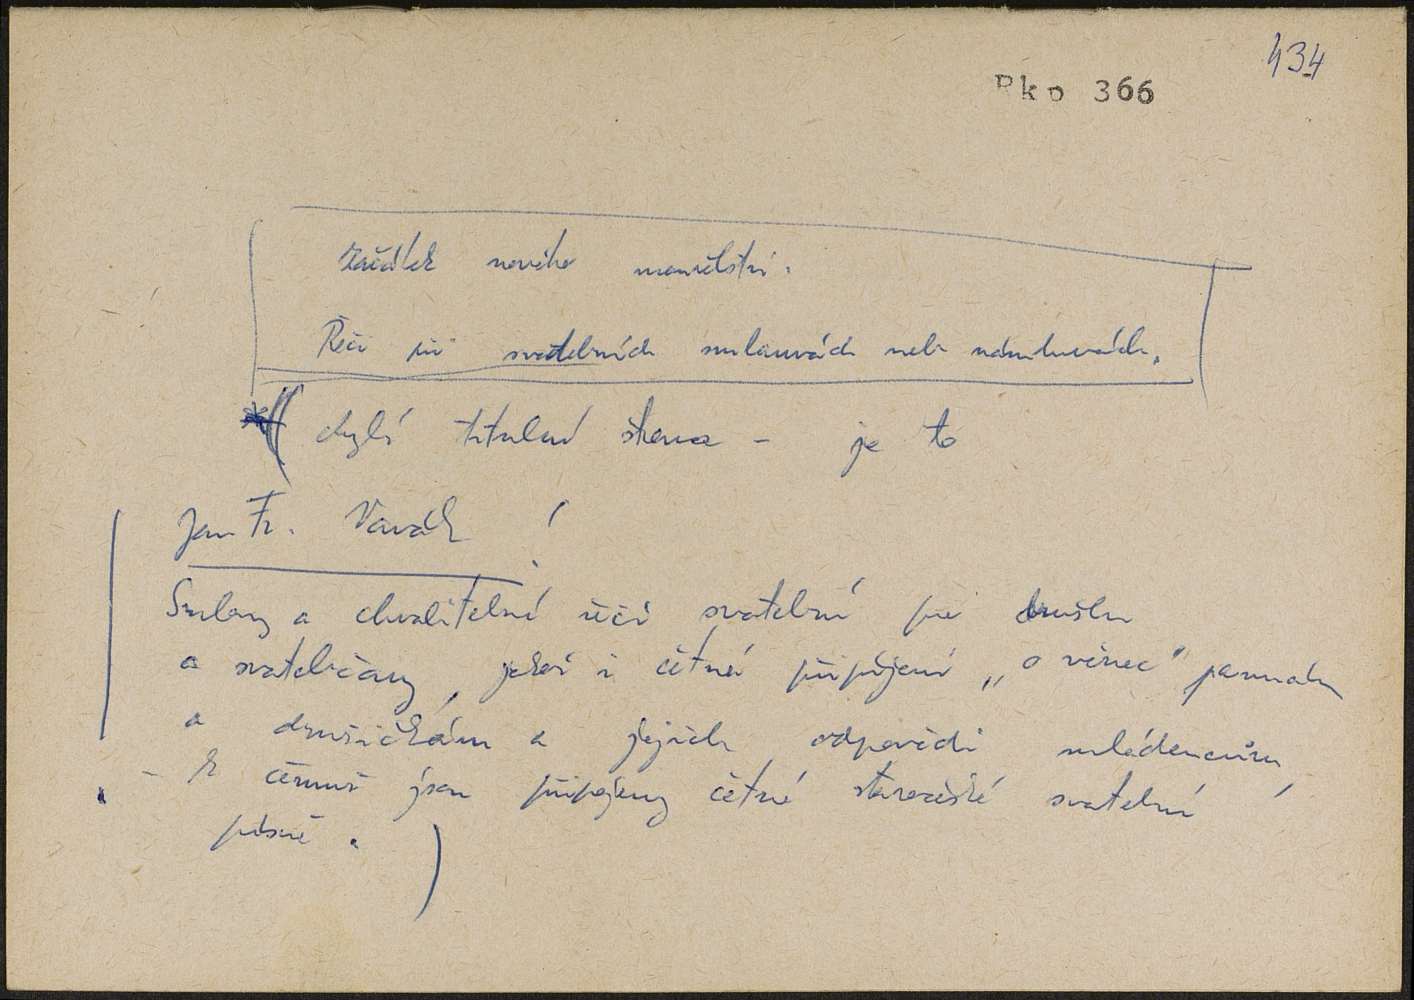 434
Rkp 366
Začátek nového manželství.
Řeči při svatebních smlauvách nebo námluvách.
* ( chybí titulní strana – je to
Jan Fr. Vavák !
Smlouvy a chvalitebné řeči svatební při
a svatebčany, jakož i četná připíjení „o věnec" pannám
a družičkám a jejich odpovědi mládencům,
– k čemuž jsou připojeny četné staročeské svatební
písně. )